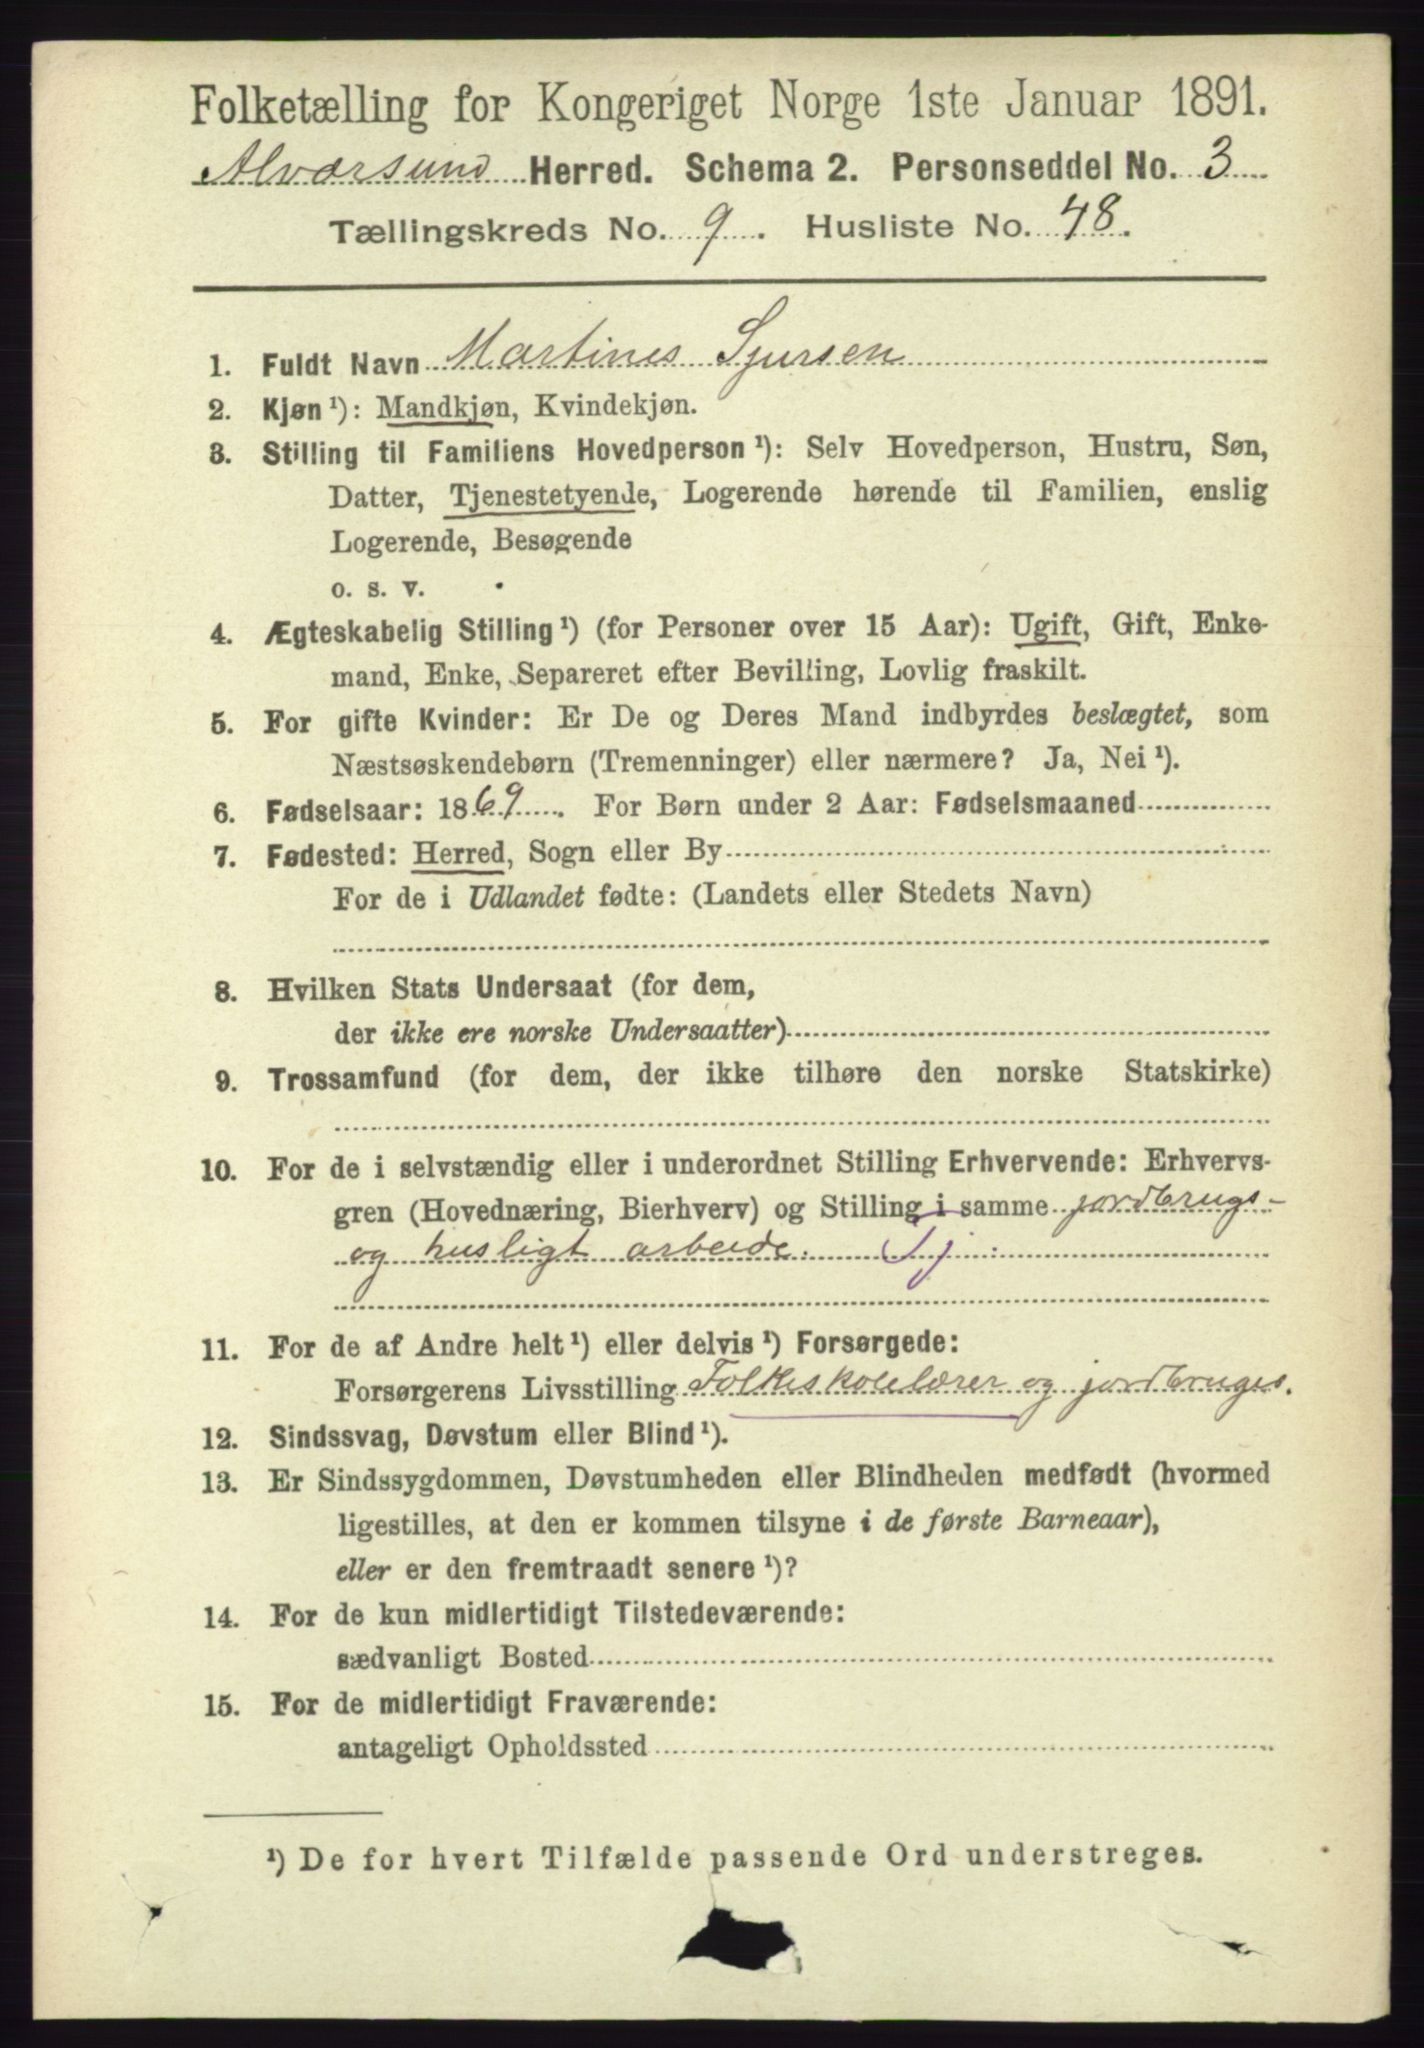 Folketælling for Kongeriget Norge 1ste Januar 1891.
Alværsund Herred. Schema 2. Personseddel No. 3
Tællingskreds No. 9. Husliste No. 48.
1. Fuldt Navn Martines Sjursen
2. Kjøn ¹): Mandkjøn, Kvindekjøn.
3. Stilling til Familiens Hovedperson ¹): Selv Hovedperson, Hustru, Søn,
Datter, Tjenestetyende, Logerende hørende til Familien, enslig
Logerende, Besøgende
o. s. v.
4. Ægteskabelig Stilling ¹) (for Personer over 15 Aar): Ugift, Gift, Enke-
mand, Enke, Separeret efter Bevilling, Lovlig fraskilt.
5. For gifte Kvinder: Er De og Deres Mand indbyrdes beslægtet, som
Næstsøskendebørn (Tremenninger) eller nærmere? Ja, Nei ¹).
6. Fødselsaar: 1869. For Børn under 2 Aar: Fødselsmaaned
7. Fødested: Herred, Sogn eller By
For de i Udlandet fødte: (Landets eller Stedets Navn)
8. Hvilken Stats Undersaat (for dem,
der ikke ere norske Undersaatter)
9. Trossamfund (for dem, der ikke tilhøre den norske Statskirke)
10. For de i selvstændig eller i underordnet Stilling Erhvervende: Erhvervs-
gren (Hovednæring, Bierhverv) og Stilling i samme jordbrugs-
og husligt arbeide. Tj.
11. For de af Andre helt ¹) eller delvis ¹) Forsørgede:
Forsørgerens Livsstilling Folkeskolelærer og jordbruges.
12. Sindssvag, Døvstum eller Blind ¹).
13. Er Sindssygdommen, Døvstumheden eller Blindheden medfødt (hvormed
ligestilles, at den er kommen tilsyne i de første Barneaar),
eller er den fremtraadt senere ¹)?
14. For de kun midlertidigt Tilstedeværende:
sædvanligt Bosted
15. For de midlertidigt Fraværende:
antageligt Opholdssted
¹) De for hvert Tilfælde passende Ord understreges.